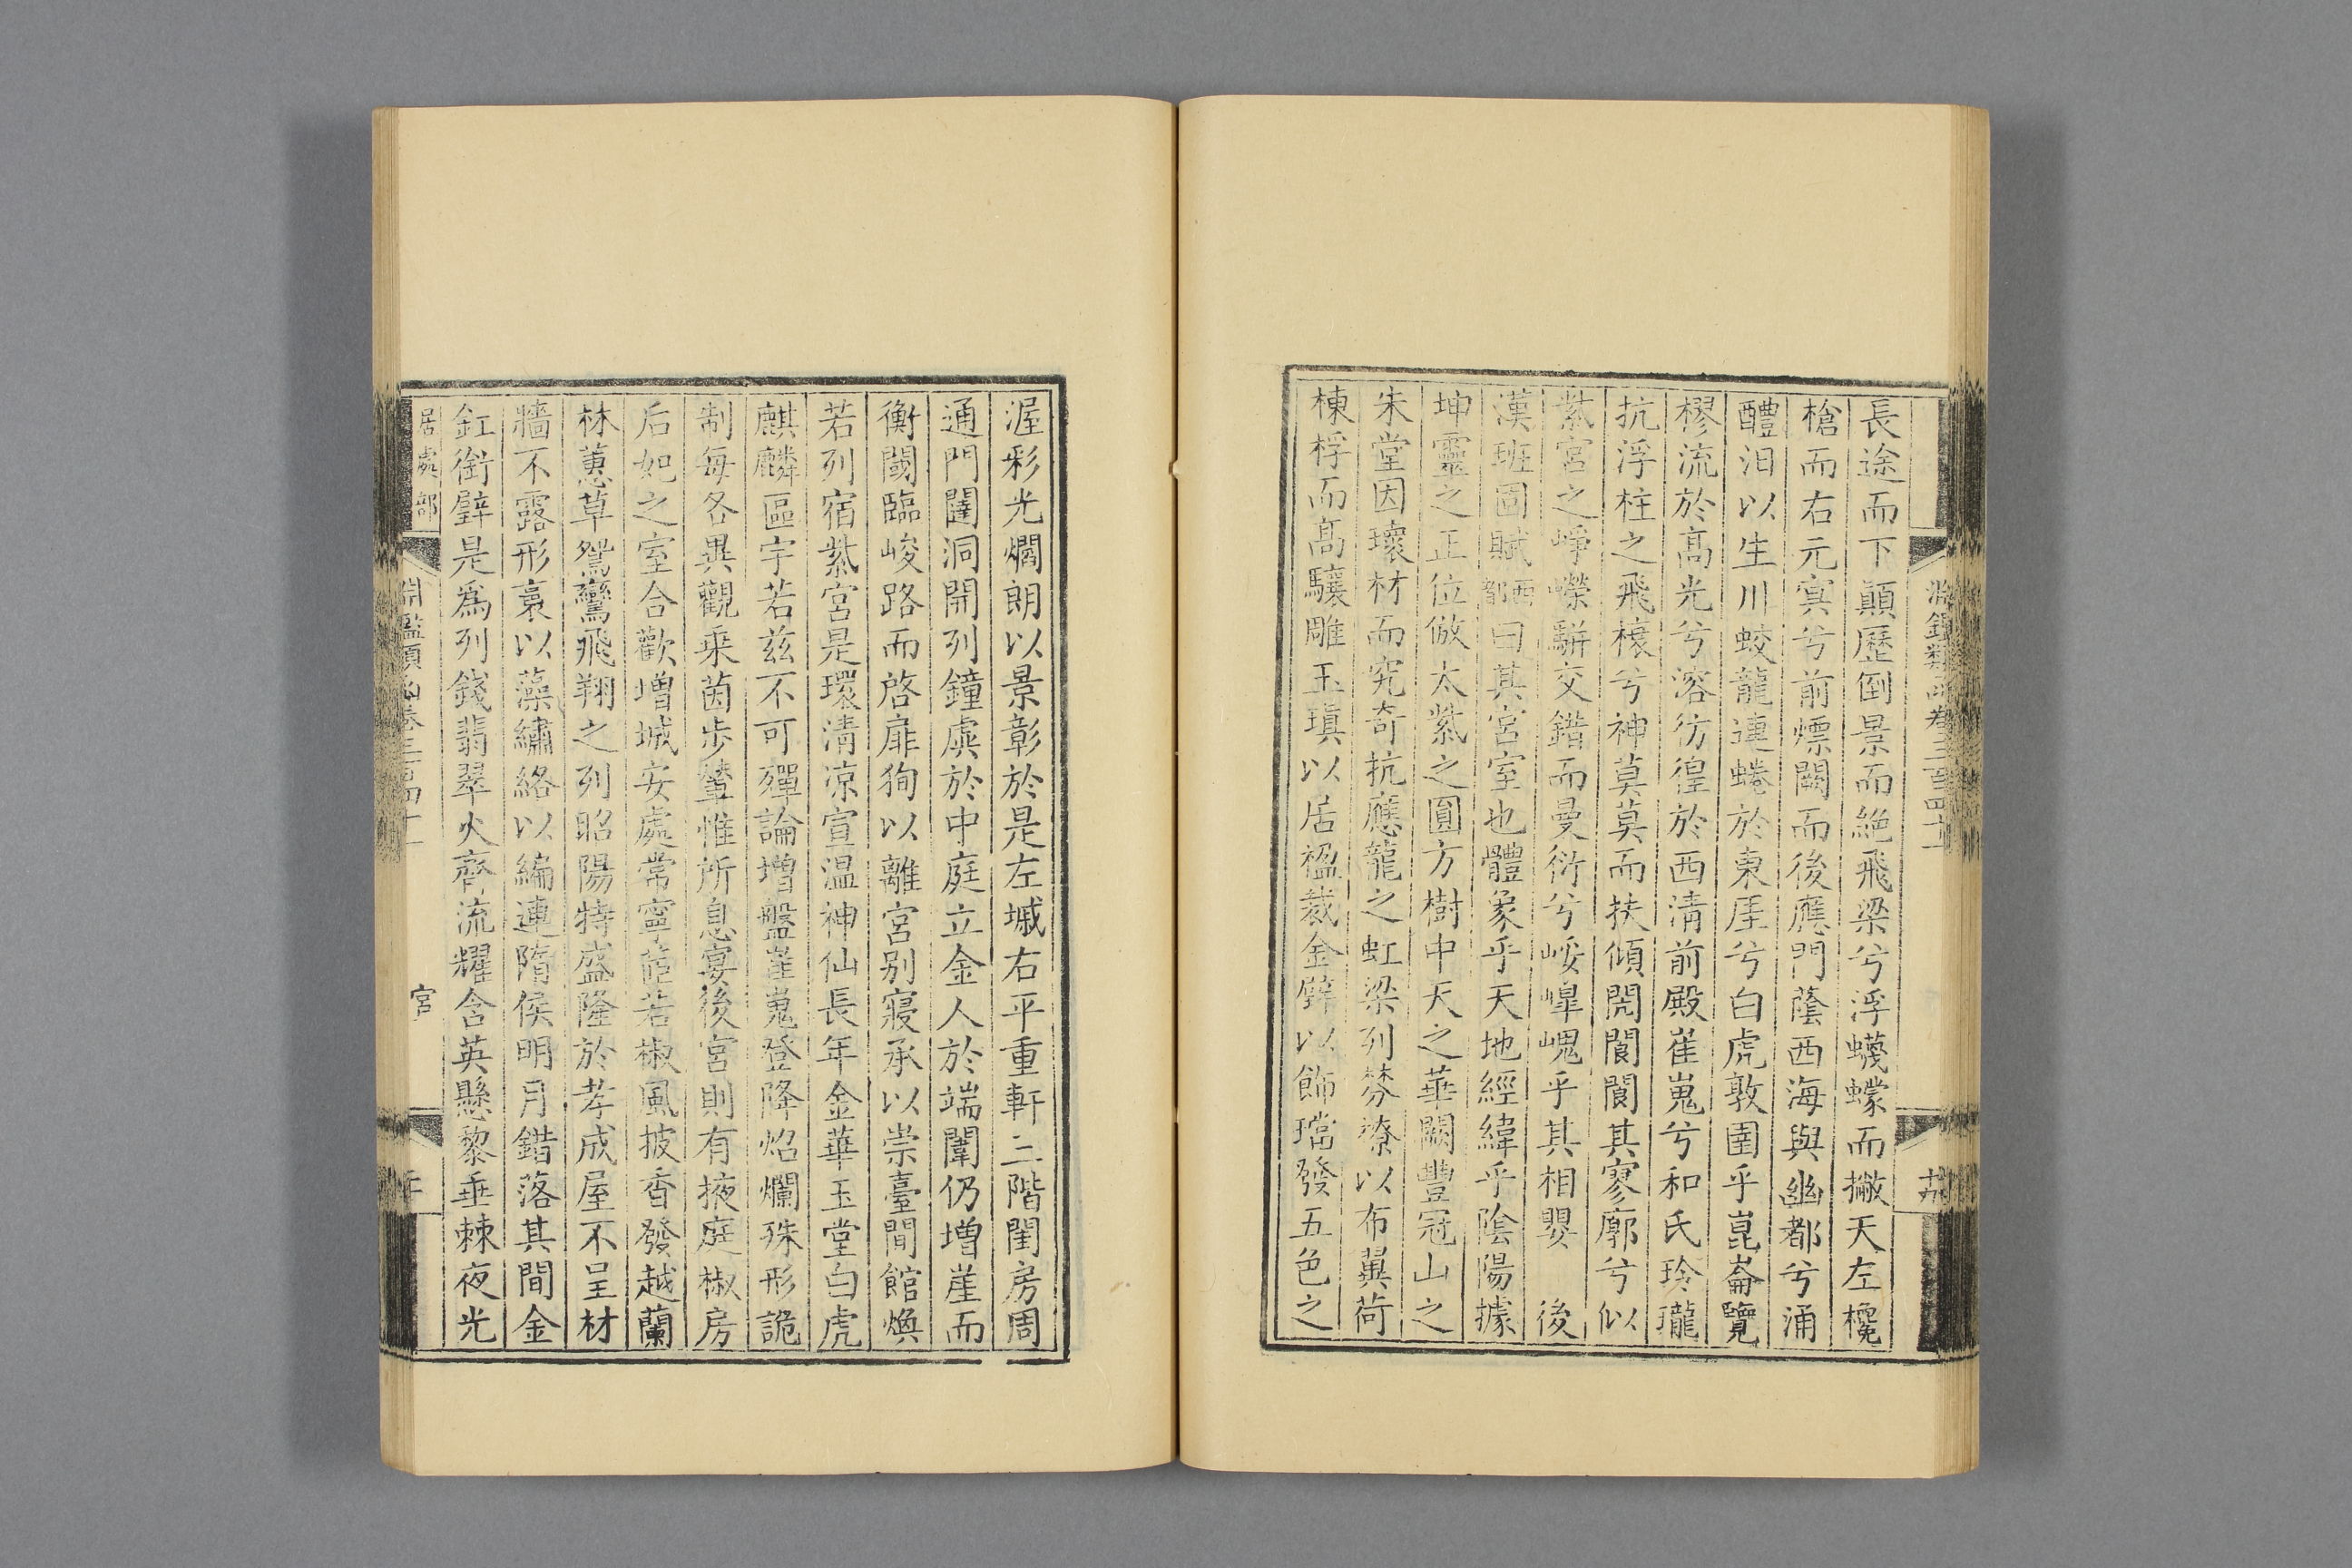 長途而下顛歷倒景而絶飛梁兮浮蠛蠓而撇天左欃
槍而右元㝠兮前熛闕而後應門䕃西海與幽都兮涌
醴汨以生川蛟龍連蜷於東厓兮白虎敦圉乎崑崙覽
樛流於髙光兮溶彷徨於西清前殿崔嵬兮和氏玲瓏
抗浮柱之飛榱兮神莫莫而扶傾閌閬閬其寥廓兮似
紫宮之崢嶸駢交錯而曼衍兮㟎嶵嵬乎其相嬰 後
漢班固賦西都曰其宮室也體象乎天地經緯乎陰陽據
坤靈之正位倣太紫之圓方樹中天之華闕豐冠山之
朱堂因瓌材而究奇抗應龍之虹梁列棼橑以布翼荷
棟桴而髙驤雕玉瑱以居楹裁金璧以飾璫發五色之
渥彩光爓朗以景彰於是左墄右平重軒三階閨房周
通門闥洞開列鐘虡於中庭立金人於端闈仍增崖而
衡閾臨峻路而啓扉徇以離宮別寢承以崇臺間館煥
若列宿紫宮是環清凉宣温神仙長年金華玉堂白虎
麒麟區宇若兹不可殫論增盤崔嵬登降炤爛殊形詭
制每各異觀乗茵步輦惟所息宴後宮則有掖庭椒房
后妃之室合歡增城安處常寧茝若椒風披香發越蘭
林蕙草鴛鸞飛翔之列昭陽特盛隆於孝成屋不呈材
牆不露形裛以藻繡絡以編連隋侯明月錯落其間金
釭銜璧是爲列錢翡翠火齊流耀含英懸黎垂棘夜光
居處部
淵鑑類函卷三百四十一
宮